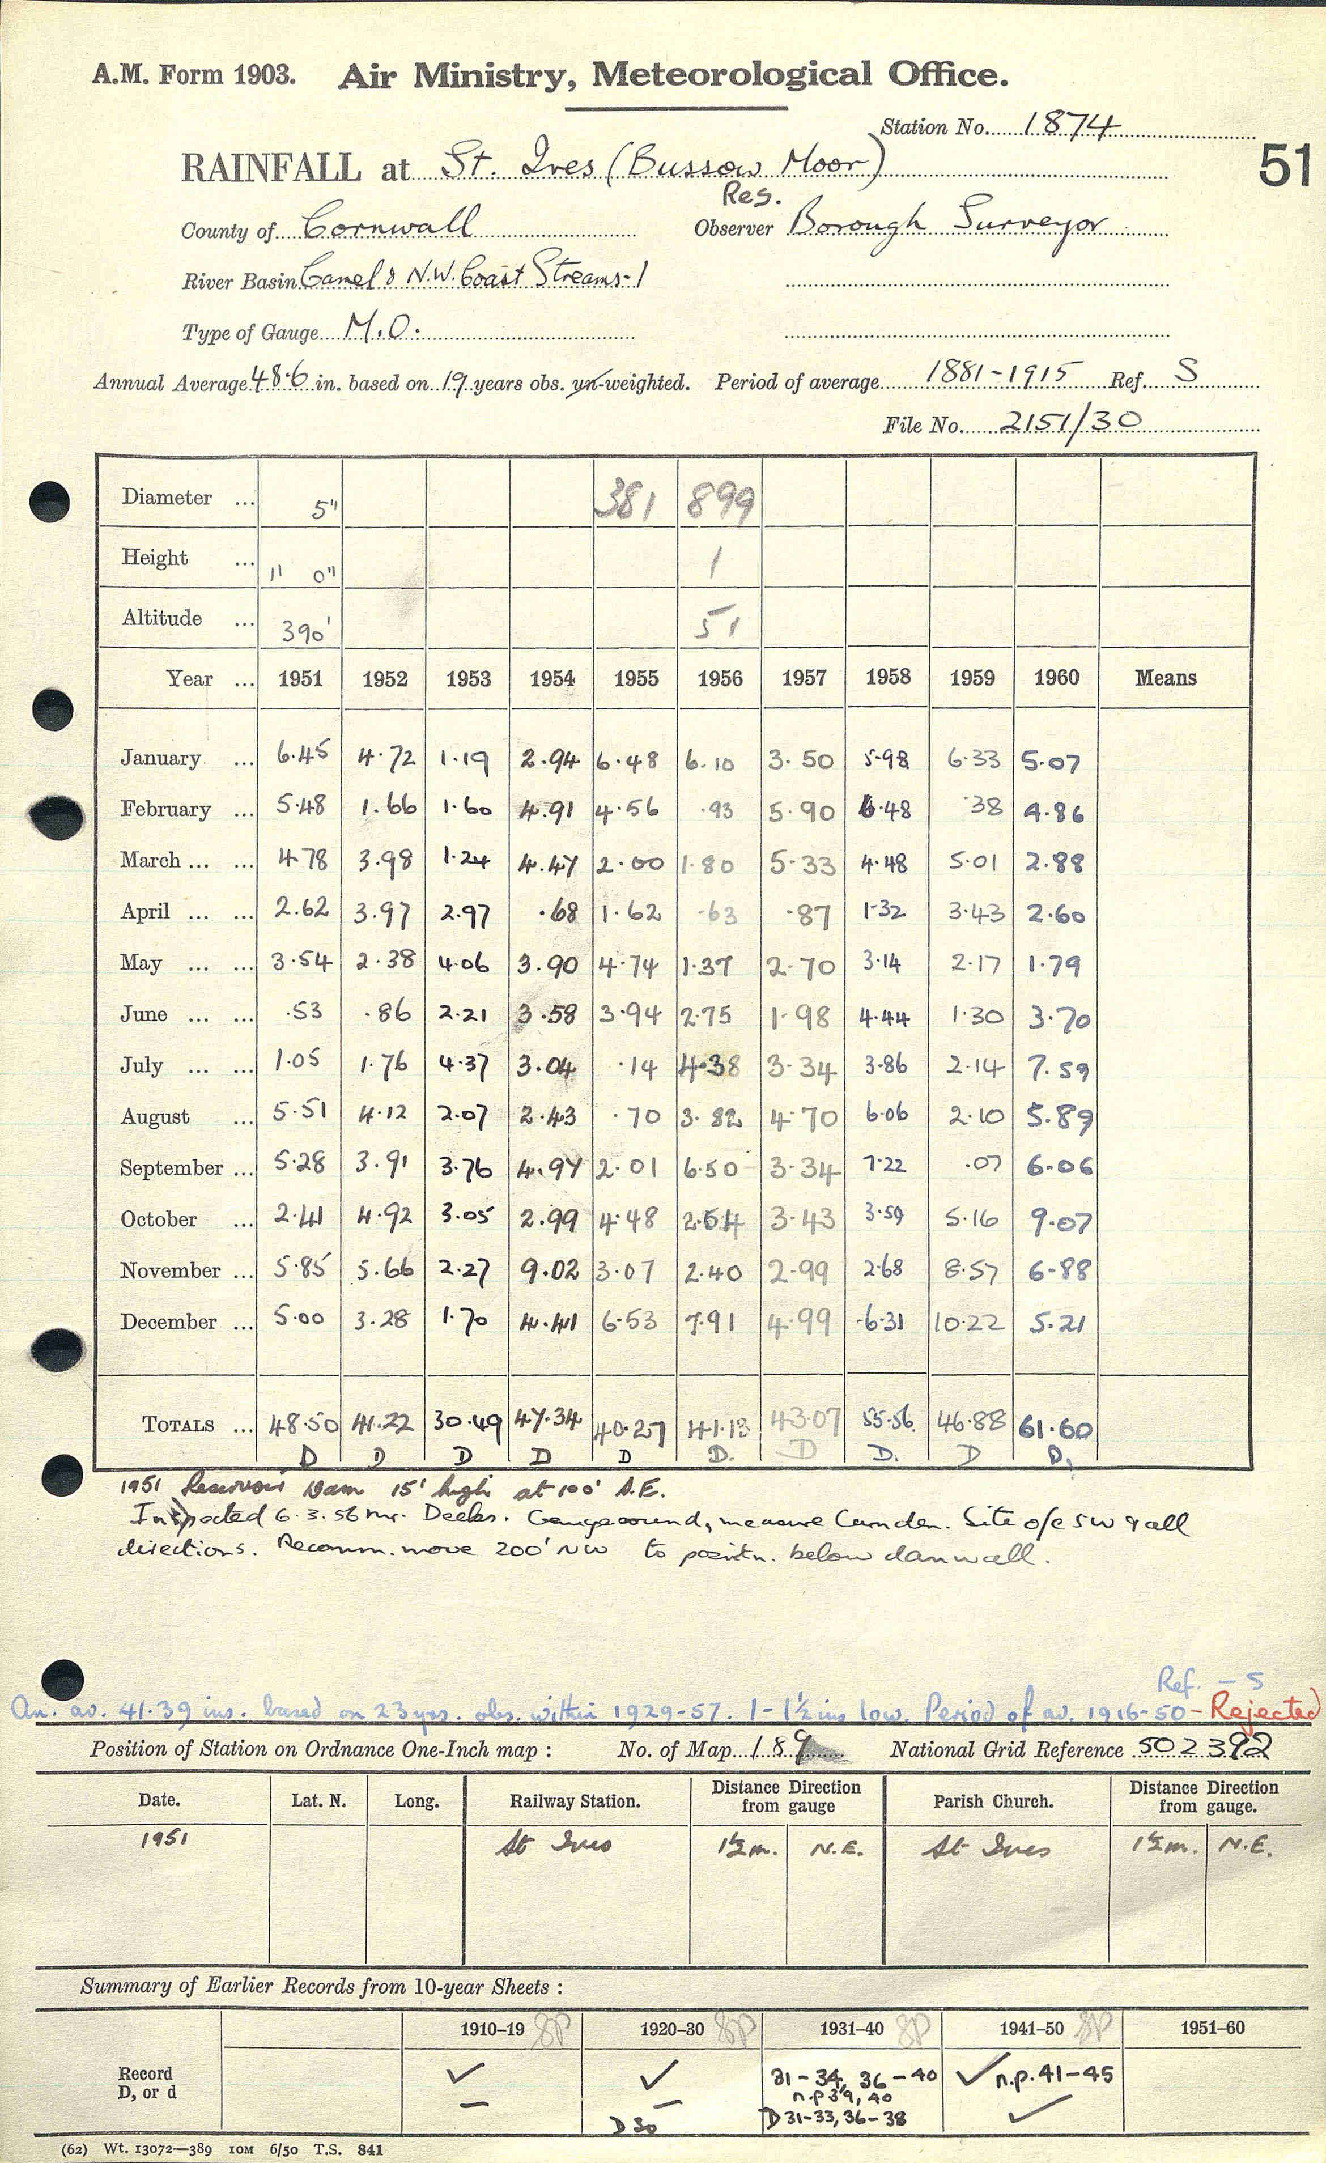 A.M. Form 1903. Air Ministry, Meteorological Office.
Station No. 1874
51
RAINFALL at St. Ives (Bussow Moor)
Res.
County of Cornwall Observer Borough Surveyor
River Basin Camel & N.W. Coast Streams-1
Type of Gauge M.O.
Annual Average 48.6 in. based on 19 years obs. un-weighted. Period of average 1881-1915 Ref. S
File No. 2151/30
Diameter ... 5" 381 899
Height ... 1' 0" 1
Altitude ... 390' 51
Year ... 1951 1952 1953 1954 1955 1956 1957 1958 1959 1960 Means
January ... 6.45 4.72 1.19 2.94 6.48 6.10 3.50 5.98 6.33 5.07
February ... 5.48 1.66 1.60 4.91 4.56 .93 5.90 6.48 .38 4.86
March ... ... 4.78 3.98 1.24 4.47 2.00 1.80 5.33 4.48 5.01 2.88
April ... ... 2.62 3.97 2.97 .68 1.62 .63 .87 1.32 3.43 2.60
May ... ... 3.54 2.38 4.06 3.90 4.74 1.37 2.70 3.14 2.17 1.79
June ... ... .53 .86 2.21 3.58 3.94 2.75 1.98 4.44 1.30 3.70
July ... ... 1.05 1.76 4.37 3.04 .14 4.38 3.34 3.86 2.14 7.59
August ... 5.51 4.12 2.07 2.43 .70 3.82 4.70 6.06 2.10 5.89
September ... 5.28 3.91 3.76 4.97 2.01 6.50 3.34 7.22 .07 6.06
October ... 2.41 4.92 3.05 2.99 4.48 2.54 3.43 3.59 5.16 9.07
November ... 5.85 5.66 2.27 9.02 3.07 2.40 2.99 2.68 8.57 6.88
December ... 5.00 3.28 1.70 4.41 6.53 7.91 4.99 6.31 10.22 5.21
TOTALS ... 48.50 41.22 30.49 47.34 40.27 41.13 43.07 55.56 46.88 61.60
D D D D D D. D D. D D.
1951 Reservoir Dam 15' high at 100' N.E.
Inspected 6.3.56 Mr. Deeks. Gauge sound, measure Camden. Site o/e SW & all
directions. Recomm. move 200' NW to positn. below dam wall.
Ref. - S
An. av. 41.39 ins. based on 23 yrs. obs. within 1929-57. 1-1½ ins low. Period of av. 1916-50 - Rejected
Position of Station on Ordnance One-Inch map : No. of Map 189 National Grid Reference 502392
Date. Lat. N. Long. Railway Station. Distance from gauge Direction Parish Church. Distance from gauge. Direction
1951 St Ives 1½m. N.E. St Ives 1½m. N.E.
Summary of Earlier Records from 10-year Sheets :
1910-19 1920-30 1931-40 1941-50 1951-60
Record ✓ ✓ 31-34, 36-40 ✓ n.p. 41-45
n.p 39, 40
D, or d — — D 30 D 31-33, 36-38 ✓
(62) Wt. 13072—389 10M 6/50 T.S. 841